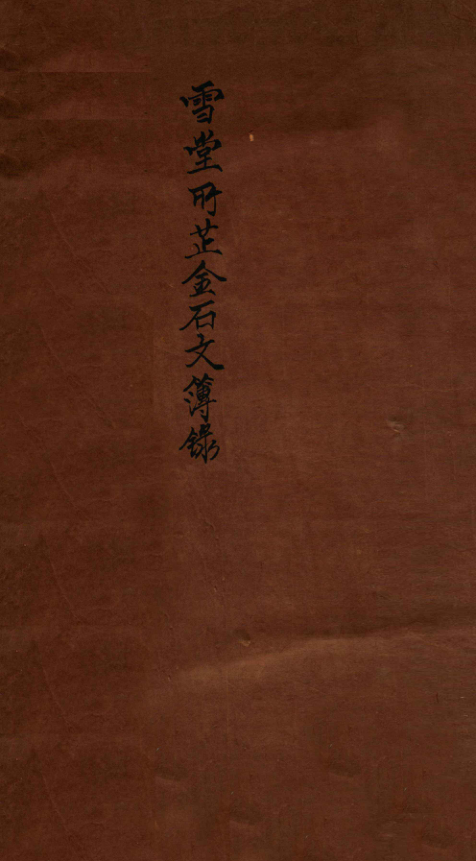 雪堂所藏金石文簿錄